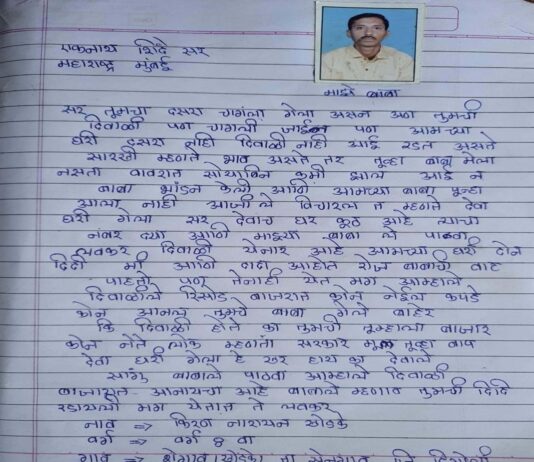 एकनाथ शिंदे सर
महाराष्ट्र मुंबई
माझे बाबा
सर तुमचा दसरा चांगला गेला असन अण तुमची
दिवाळी पण चागली जाईन पण आमच्या
घरी दसरा नाही दिवाळी नाही आई रडत असते
सारखी म्हणते भाव असते तर तुव्हा बाबा मेला
नसता वावरात सोयाबिन कमी झाल आई न
बाबा भांडन केली आणि आमच्या बाबा पून्हा
आला नाही आजीले विचारल त म्हणते देवा
घरी गेला सर देवाच घर कूठ आहे त्याचा
नंबर द्या आणि माझ्या बाबा ले पाठवा
लवकर दिवाळी येनार आहे आमच्या घरी दोन
दिदी मी आणि दादी आहोत रोज बाबाची वाट
पाहतो पण तेनाही येत मग आम्हाले
दिवाळीले रिसोड बाजारात कोन नेईल कपडे
कोन आनल तुमचे बाबा गेले बाहेर
कि दिवाळी होते का तुमची तूम्हाला बाजार
कोन नेते लोक म्हणता सरकार मूळ तूव्हा बाप
देवा घरी गेला हे खर हाय का देवाले
सांगू बाबाले पाठवा आम्हाले दिवाळी
बाजारात आनायचा आहे बाबाले म्हणाव तुमची दिदि
रडायली मग येतात ते लवकर
नाव ⇒ किरण नारायन खोडके
वर्ग ⇒ वर्ग ८ वा
गाव ⇒ शेगाव (खोडके) ता सेनगाव जि हिंगोली